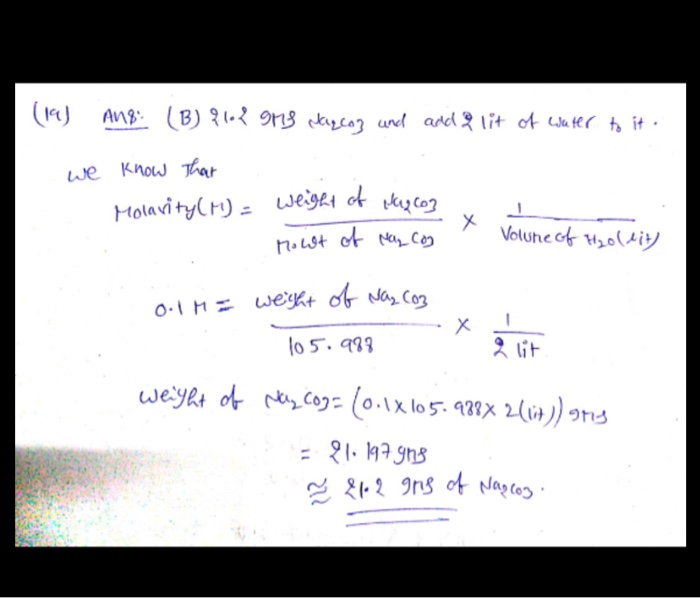 (19) Ans: (B) 21.2 gms Na2CO3 and add 2 lit of water to it.
we know that
Molarity(M) = weight of Na2CO3 / M.wt of Na2CO3 × 1 / Volume of H2O(lit)
0.1 M = weight of Na2CO3 / 105.988 × 1 / 2 lit
weight of Na2CO3 = (0.1 × 105.988 × 2(lit)) gms
= 21.197 gms
≅ 21.2 gms of Na2CO3.